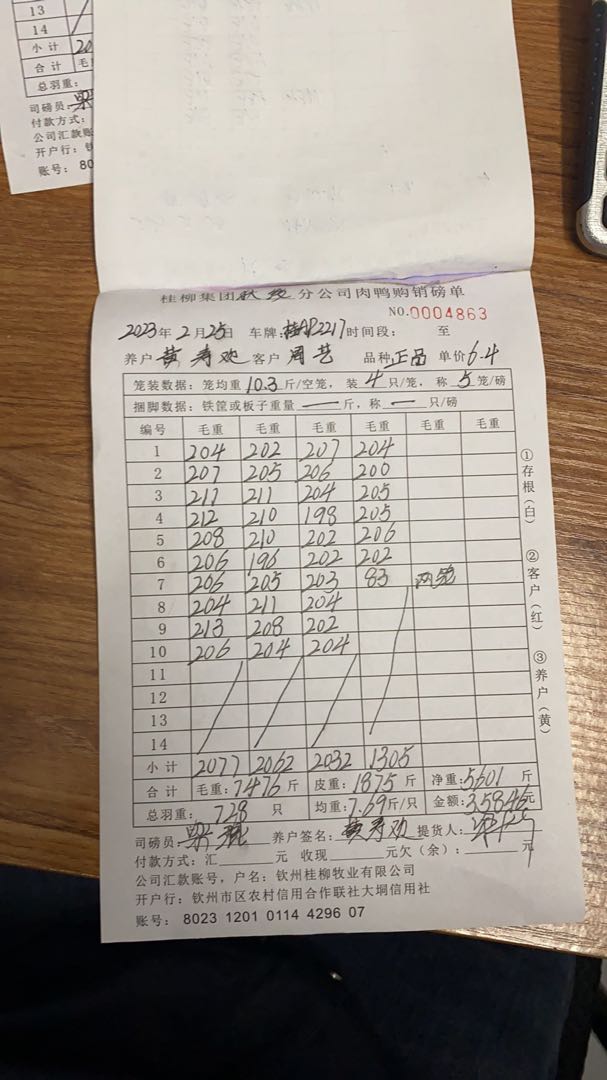 13
14
小计 20
合计 毛
总羽重：
司磅员：梁
付款方式：
公司汇款账
开户行：钦
账号：80
桂柳集团钦州分公司肉鸭购销磅单
NO.0004863
2023年2月25日 车牌：桂AP2217 时间段： 至
养户 黄寿劝 客户 周艺 品种 正品 单价6.4
笼装数据：笼均重10.3斤/空笼，装4只/笼，称5笼/磅
捆脚数据：铁筐或板子重量—斤，称—只/磅
编号 毛重 毛重 毛重 毛重 毛重 毛重
1 204 202 207 204
2 207 205 206 200
3 211 211 204 205
4 212 210 198 205
5 208 210 202 206
6 206 196 202 202
7 206 205 203 83 两笼
8 204 211 204
9 213 208 202
10 206 204 204
11
12
13
14
小计 2077 2062 2032 1305
合计 毛重：7476斤 皮重：1875斤 净重：5601斤
总羽重：728只 均重：7.69斤/只 金额：35846元
司磅员 梁 养户签名：黄寿劝 提货人：
付款方式：汇 元 收现 元欠（余）： 元
公司汇款账号，户名：钦州桂柳牧业有限公司
开户行：钦州市区农村信用合作联社大垌信用社
账号：8023 1201 0114 4296 07
①存根（白）
②客户（红）
③养户（黄）